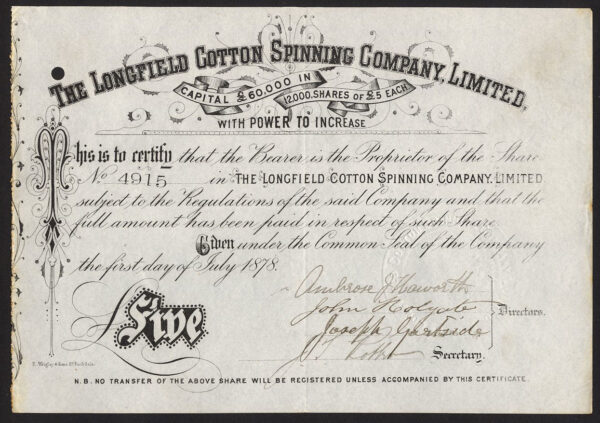 THE LONGFIELD COTTON SPINNING COMPANY, LIMITED,
CAPITAL £60,000 IN
12,000, SHARES OF £5 EACH
WITH POWER TO INCREASE
This is to certify that the Bearer is the Proprietor of the Share
No. 4915 in THE LONGFIELD COTTON SPINNING COMPANY, LIMITED
subject to the Regulations of the said Company and that the
full amount has been paid in respect of such Share
Given under the Common Seal of the Company
the first day of July 1878.
Ambrose J Haworth
John Holgate
Joseph Gartside
Directors.
£ Five
Secretary.
N.B. NO TRANSFER OF THE ABOVE SHARE WILL BE REGISTERED UNLESS ACCOMPANIED BY THIS CERTIFICATE.